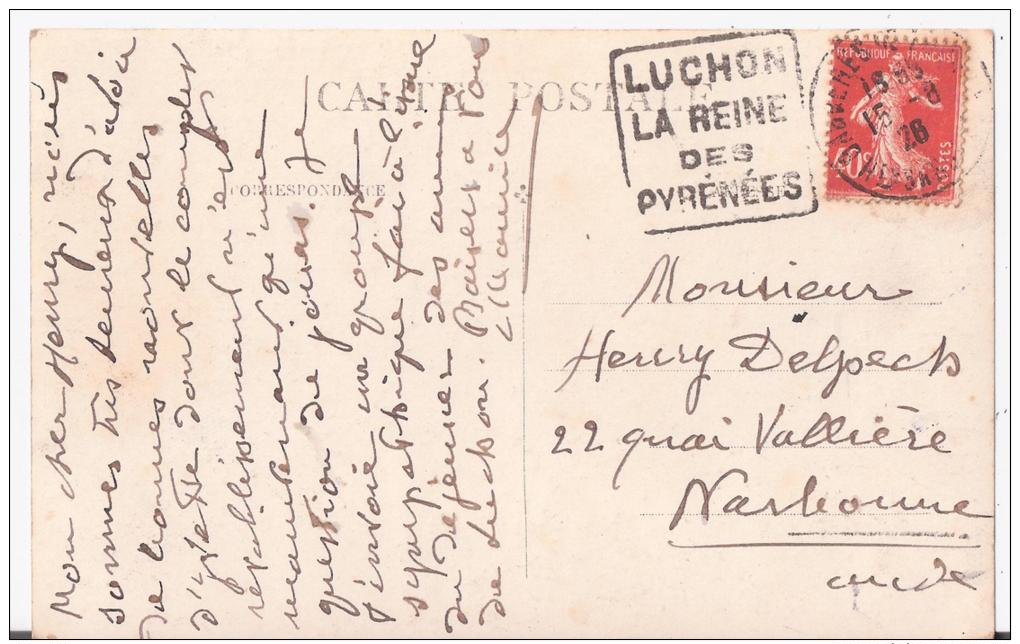 CARTE POSTALE
CORRESPONDANCE
LUCHON
LA REINE
DES
PYRÉNÉES
REPUBLIQUE FRANÇAISE
POSTES
26
Mon cher Henry, nous
sommes très heureux d'avoir
de bonnes nouvelles
d'Yvette dont le complet
rétablissement n'est
maintenant qu'une
question de jours. Je
t'envoie un groupe
sympathique fait à l'issue
du déjeuner des amis
de Luchon. Baisers à tous
Maurice
Monsieur
Henry Delpech
22 quai Vallière
Narbonne
Aude